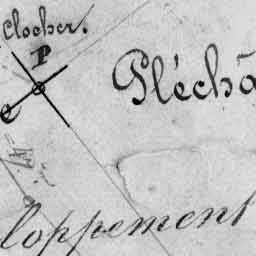 Clocher.
P
Pléchâ
loppement